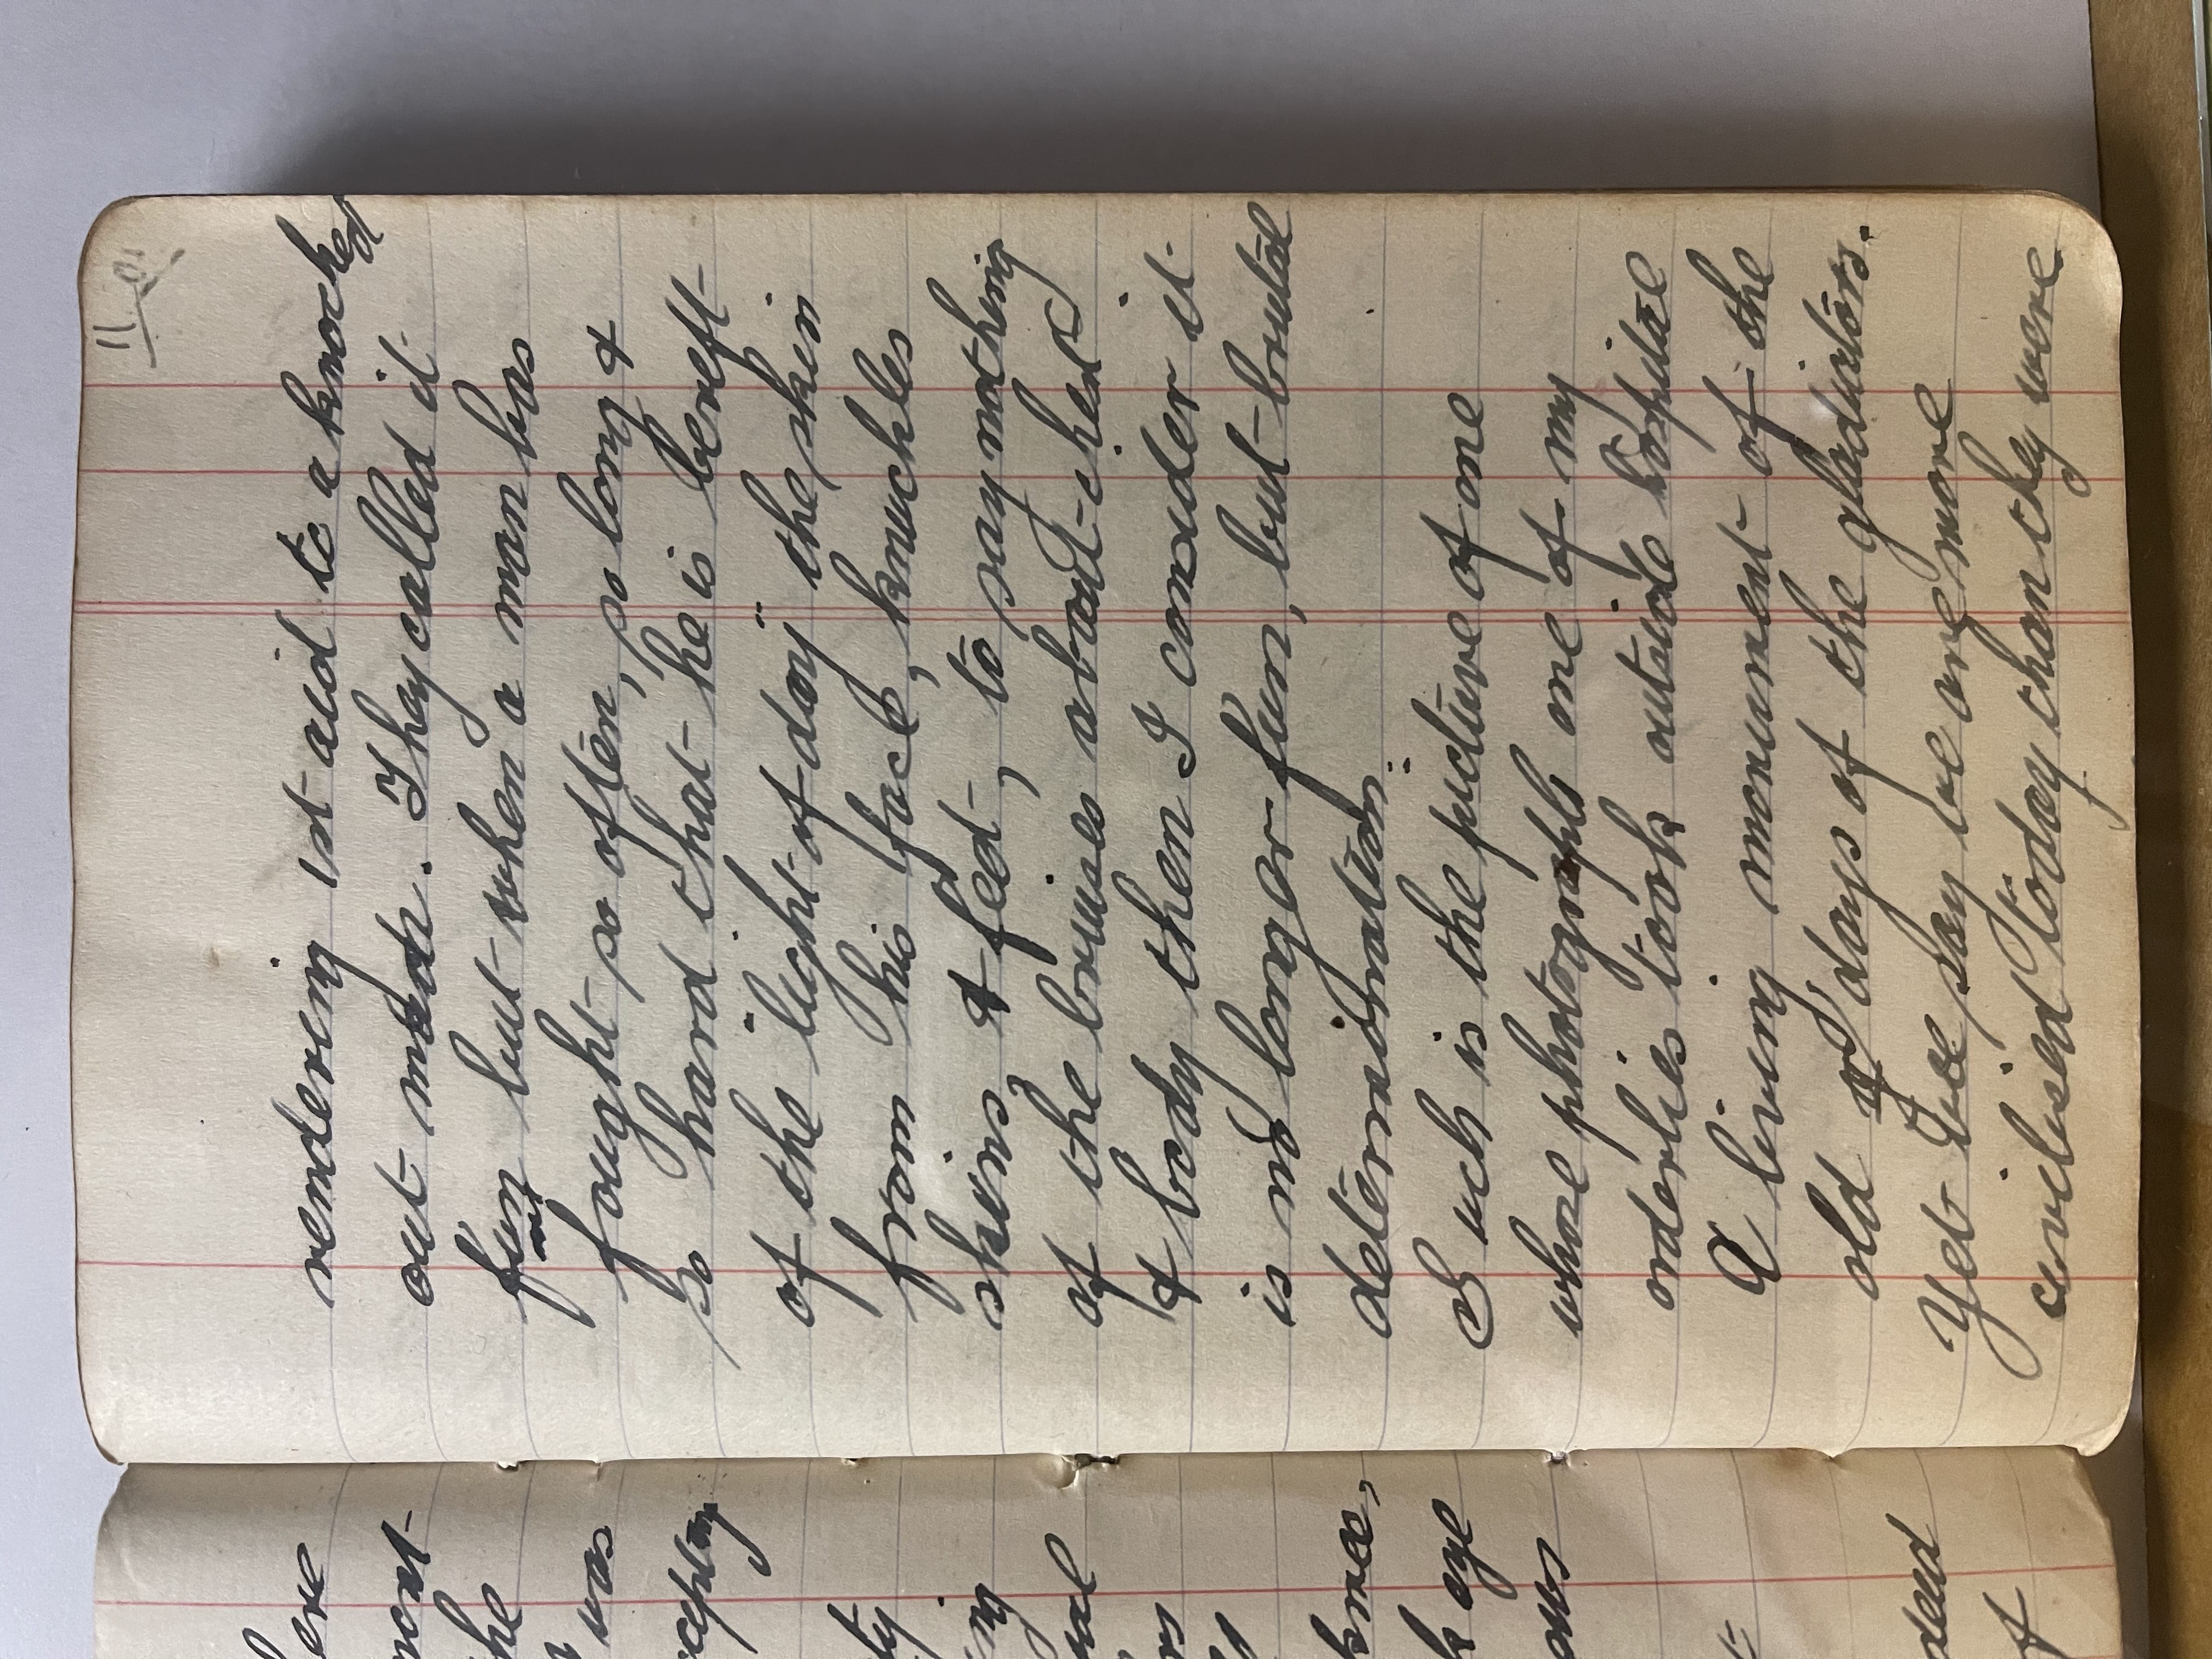 ere
mont
she
was
ccepting
ty
ng
knee,
k eye
dead
of
11
rendering 1st aid to a knocked
out man. They called it
fun but when a man has
fought so often, so long &
so hard that he is bereft
of the "light of day" the skin
from his face, knuckles
shins & feet, to say nothing
of the bruises about his head
& body then I consider it
is no longer fun, but brutal
determination"
Such is the picture of one
whose photograph one of my
orderlies took outside hospital
A living monument of the
old days of the gladiators.
Yet we say we are more
civilised today than they were